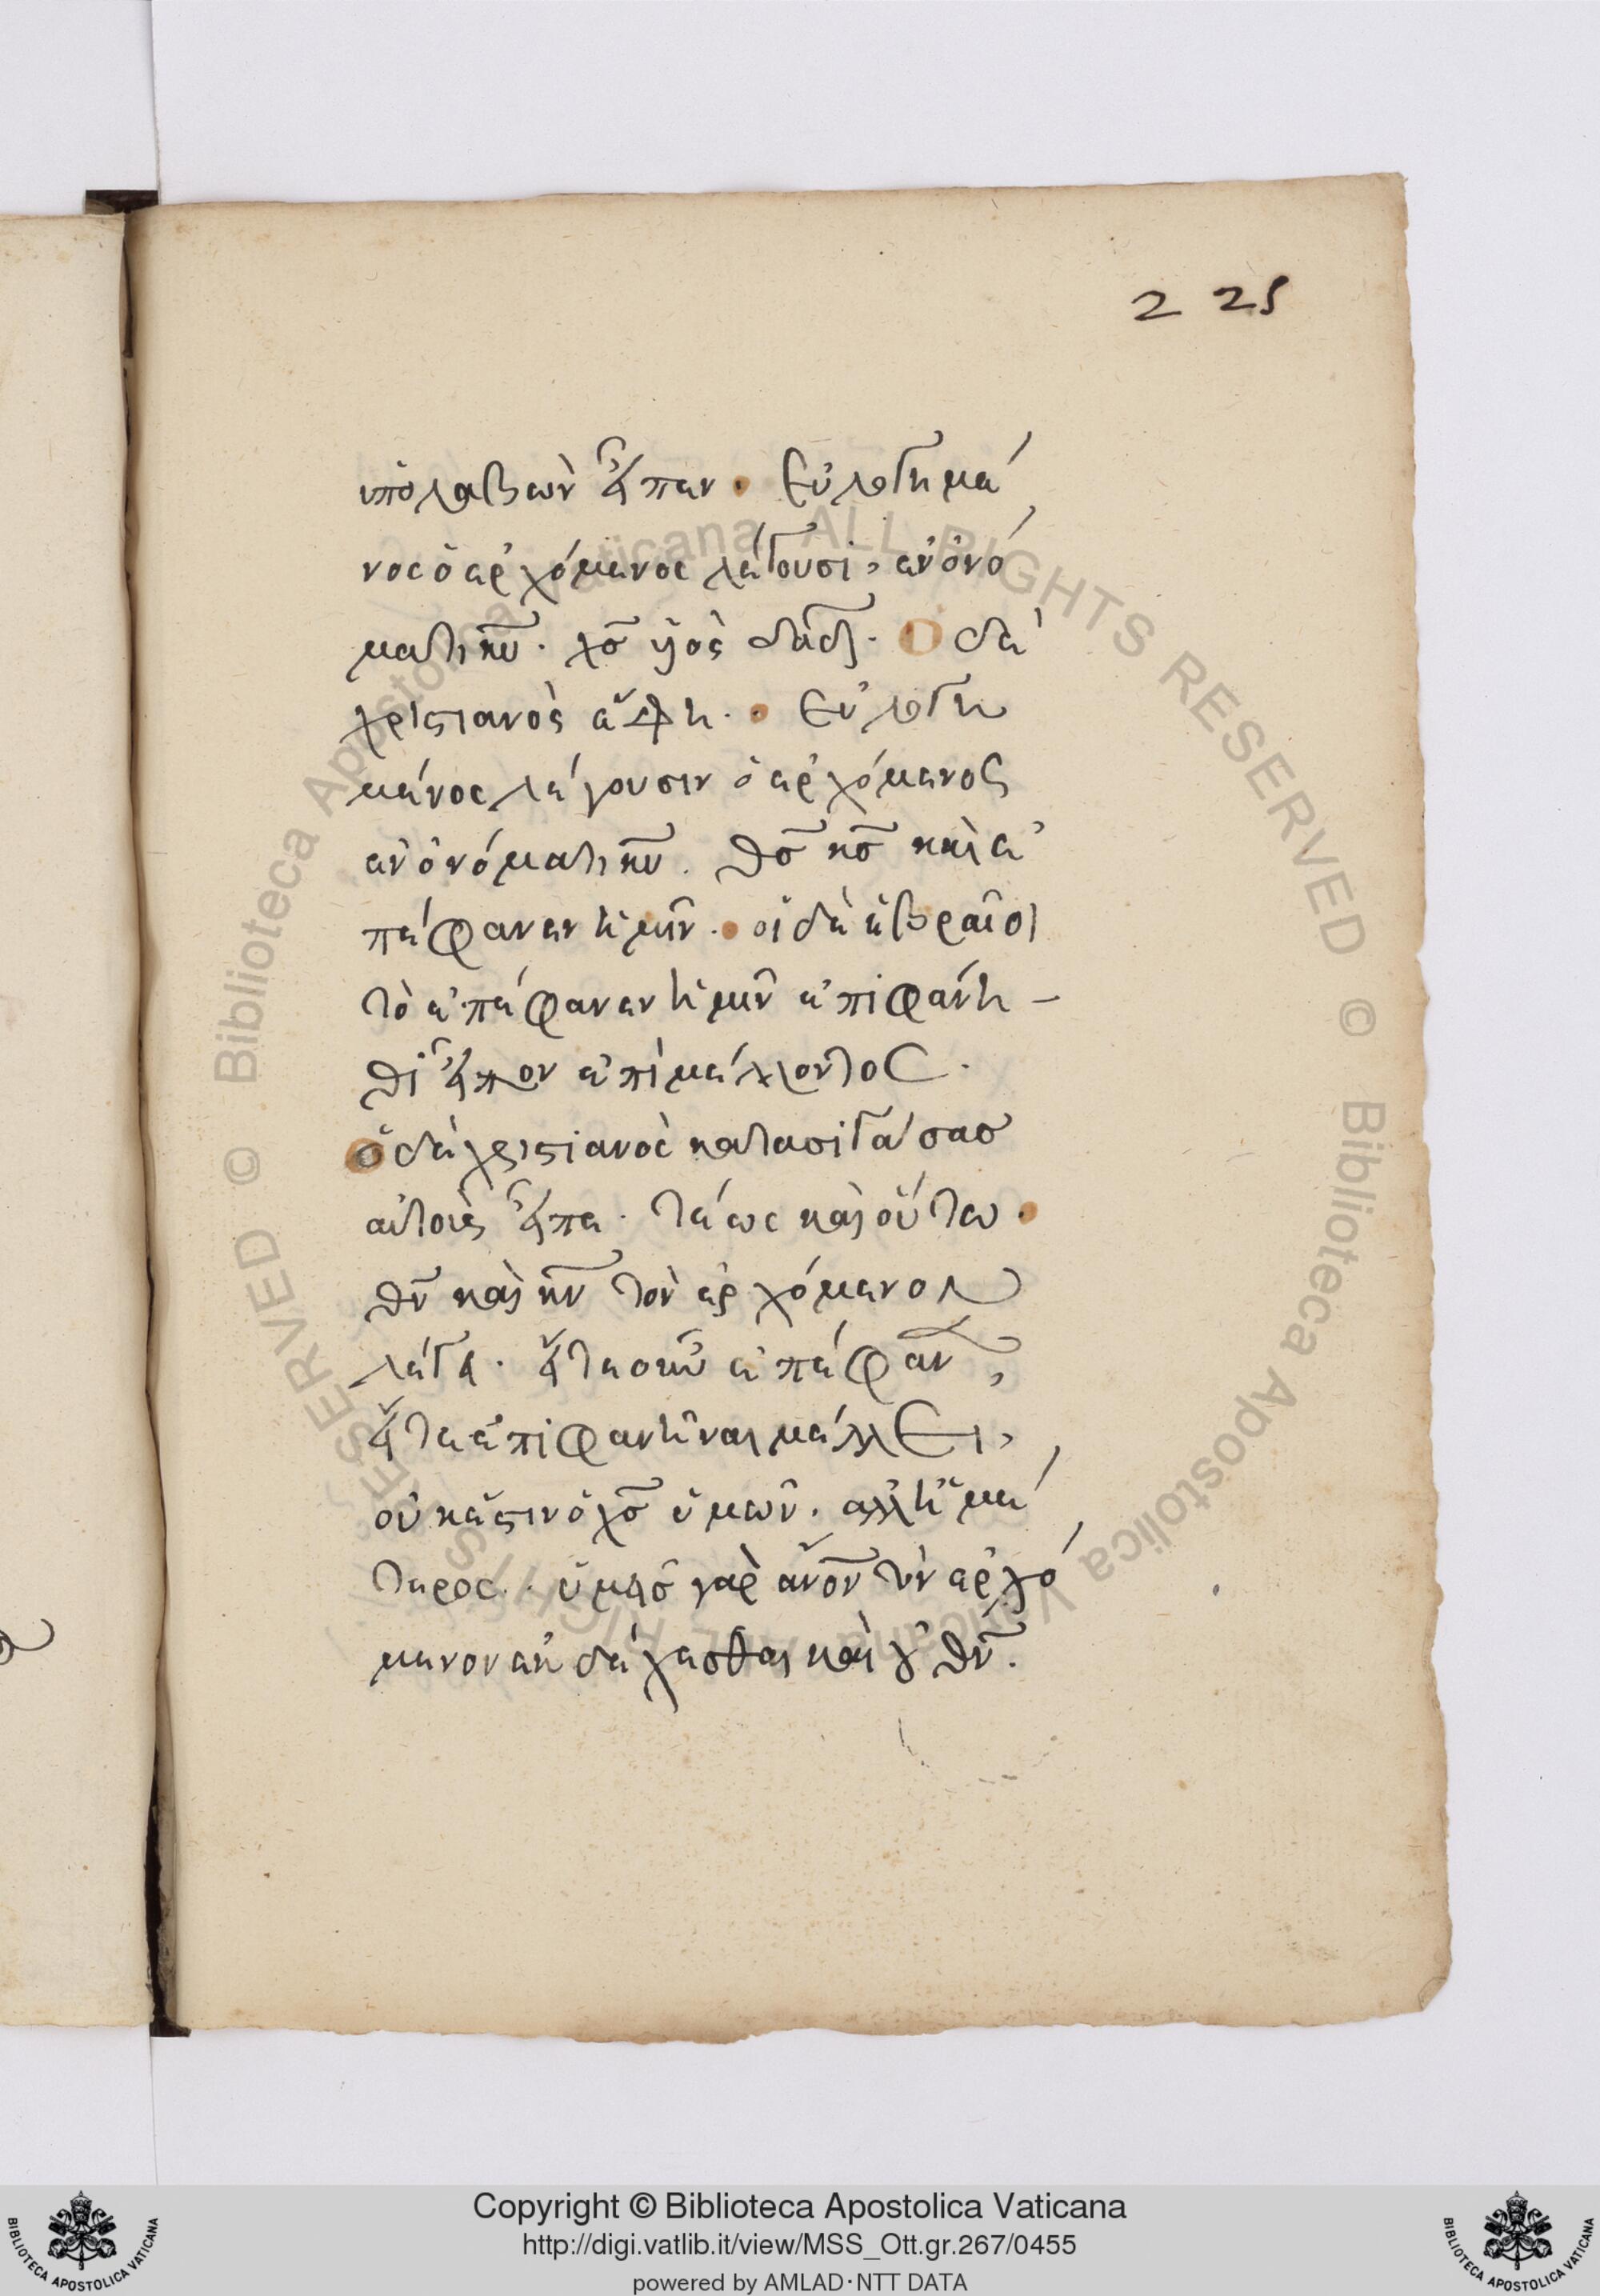 225
ὑπολαβὼν εἶπεν· Εὐλογημέ
νος ὁ ἐρχόμενος λέγουσι, ἐν ὀνό
ματι κυ̅· χς̅ υἱὸς δαδ̅· Ὁ δὲ
χριστιανὸς ἔφη· Εὐλογη
μένος λέγουσιν ὁ ἐρχόμενος
ἐν ὀνόματι κυ̅. θς̅ κς̅ καὶ ἐ
πέφανεν ἡμῖν· οἱ δὲ ἑβραῖοι
τὸ ἐπέφανεν ἡμῖν ἐπιφάνη-
θι εἶπον ἐπὶ μέλλοντος·
ὁ δὲ χριστιανὸς κατασιγάσας
αὐτοὺς εἶπε· τέως καὶ οὕτω·
θν̅ καὶ κν̅ τὸν ἐρχόμενον
λέγει· εἴτε οὖν ἐπέφαν,
εἴτε ἐπιφανῆναι μέλλει,
οὐκ ἔστιν ὁ χς̅ ὑμῶν· ἀλλ' ἡμέ
τερος· ὑμεῖς γὰρ ἄνον̅ τὸν ἐρχό
μενον ἐκδέχεσθαι καὶ οὐ θν̅.
Copyright © Biblioteca Apostolica Vaticana
http://digi.vatlib.it/view/MSS_Ott.gr.267/0455
powered by AMLAD·NTT DATA
BIBLIOTECA APOSTOLICA VATICANA
BIBLIOTECA APOSTOLICA VATICANA
© Biblioteca Apostolica Vaticana ALL RIGHTS RESERVED
© Biblioteca Apostolica Vaticana ALL RIGHTS RESERVED